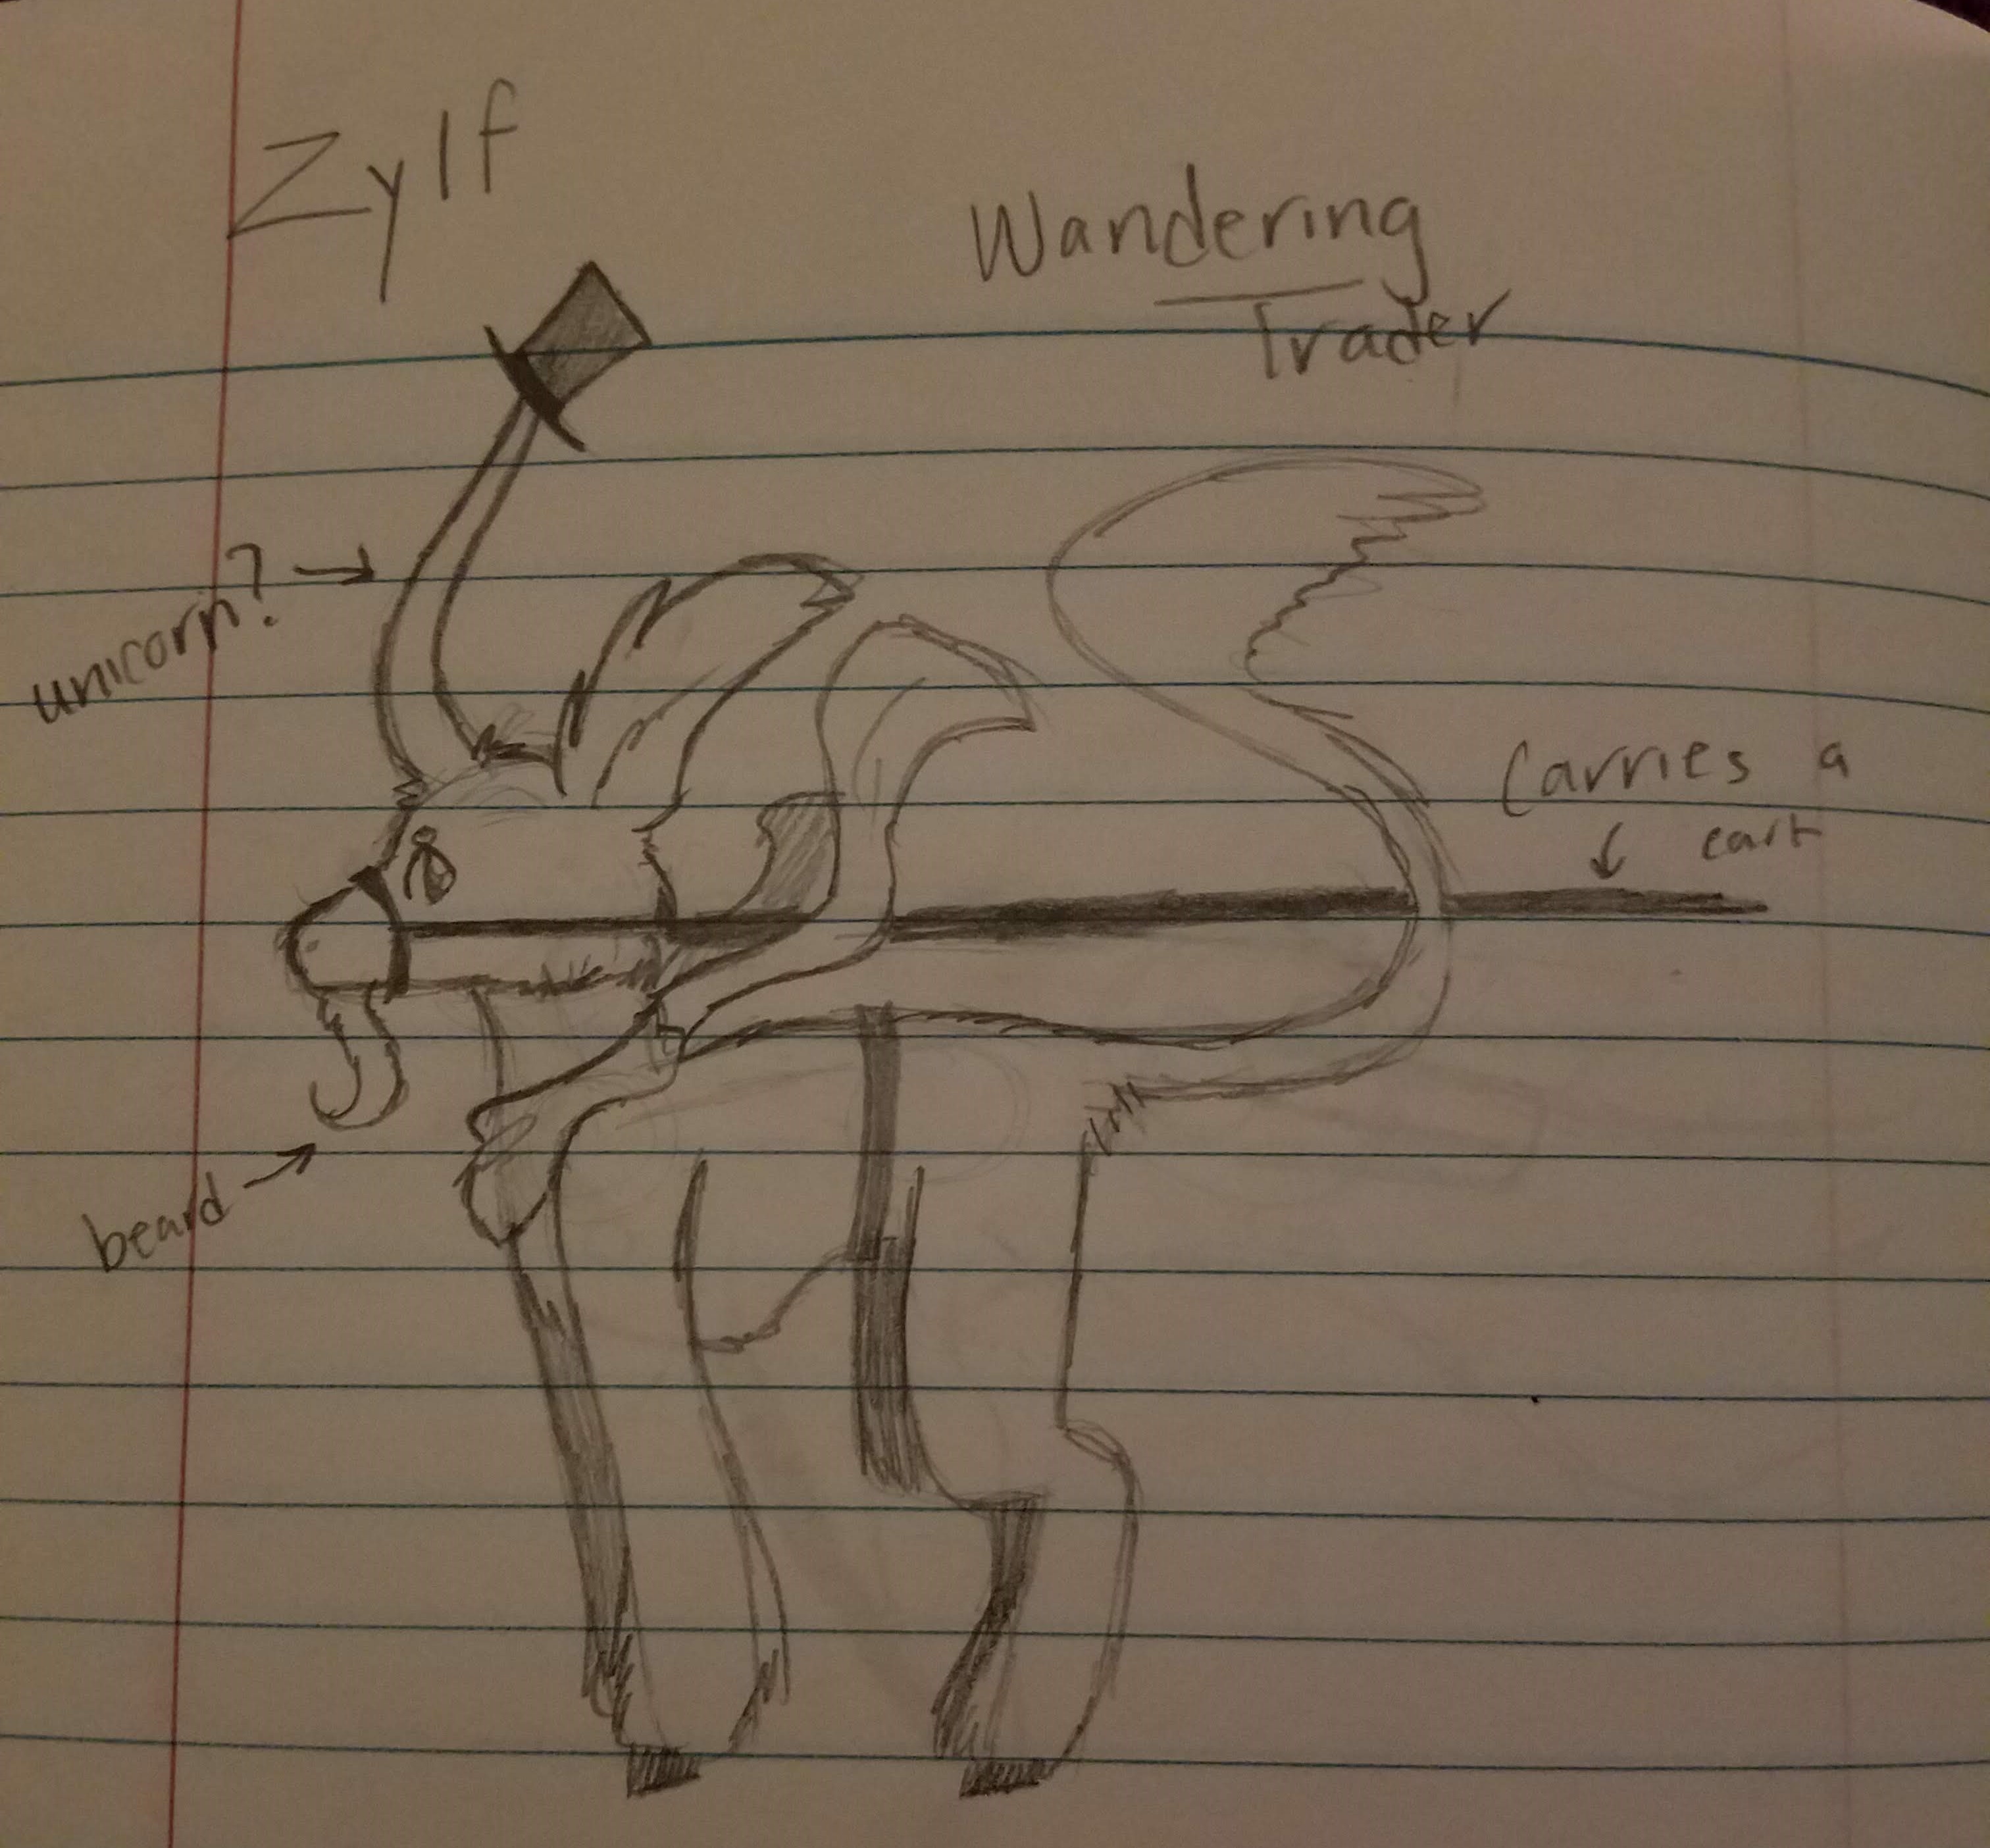 Zylf
Wandering
Trader
unicorn?
Carries a
cart
beard